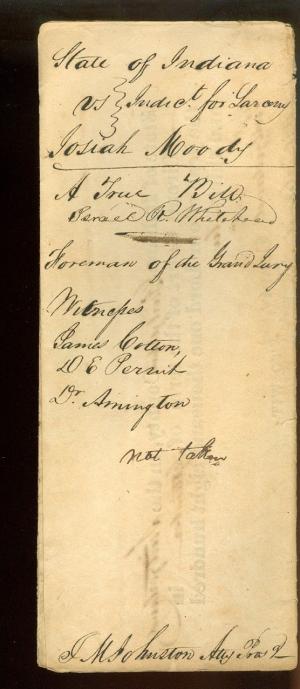 State of Indiana
vs } Indict. for Larceny
Josiah Moody
A True Bill
Israel R. Whitehead
Foreman of the Grand Jury
Witnesses
James Cotton,
D E Perrit
Dr Amington
not taken
J M Johnston Atty